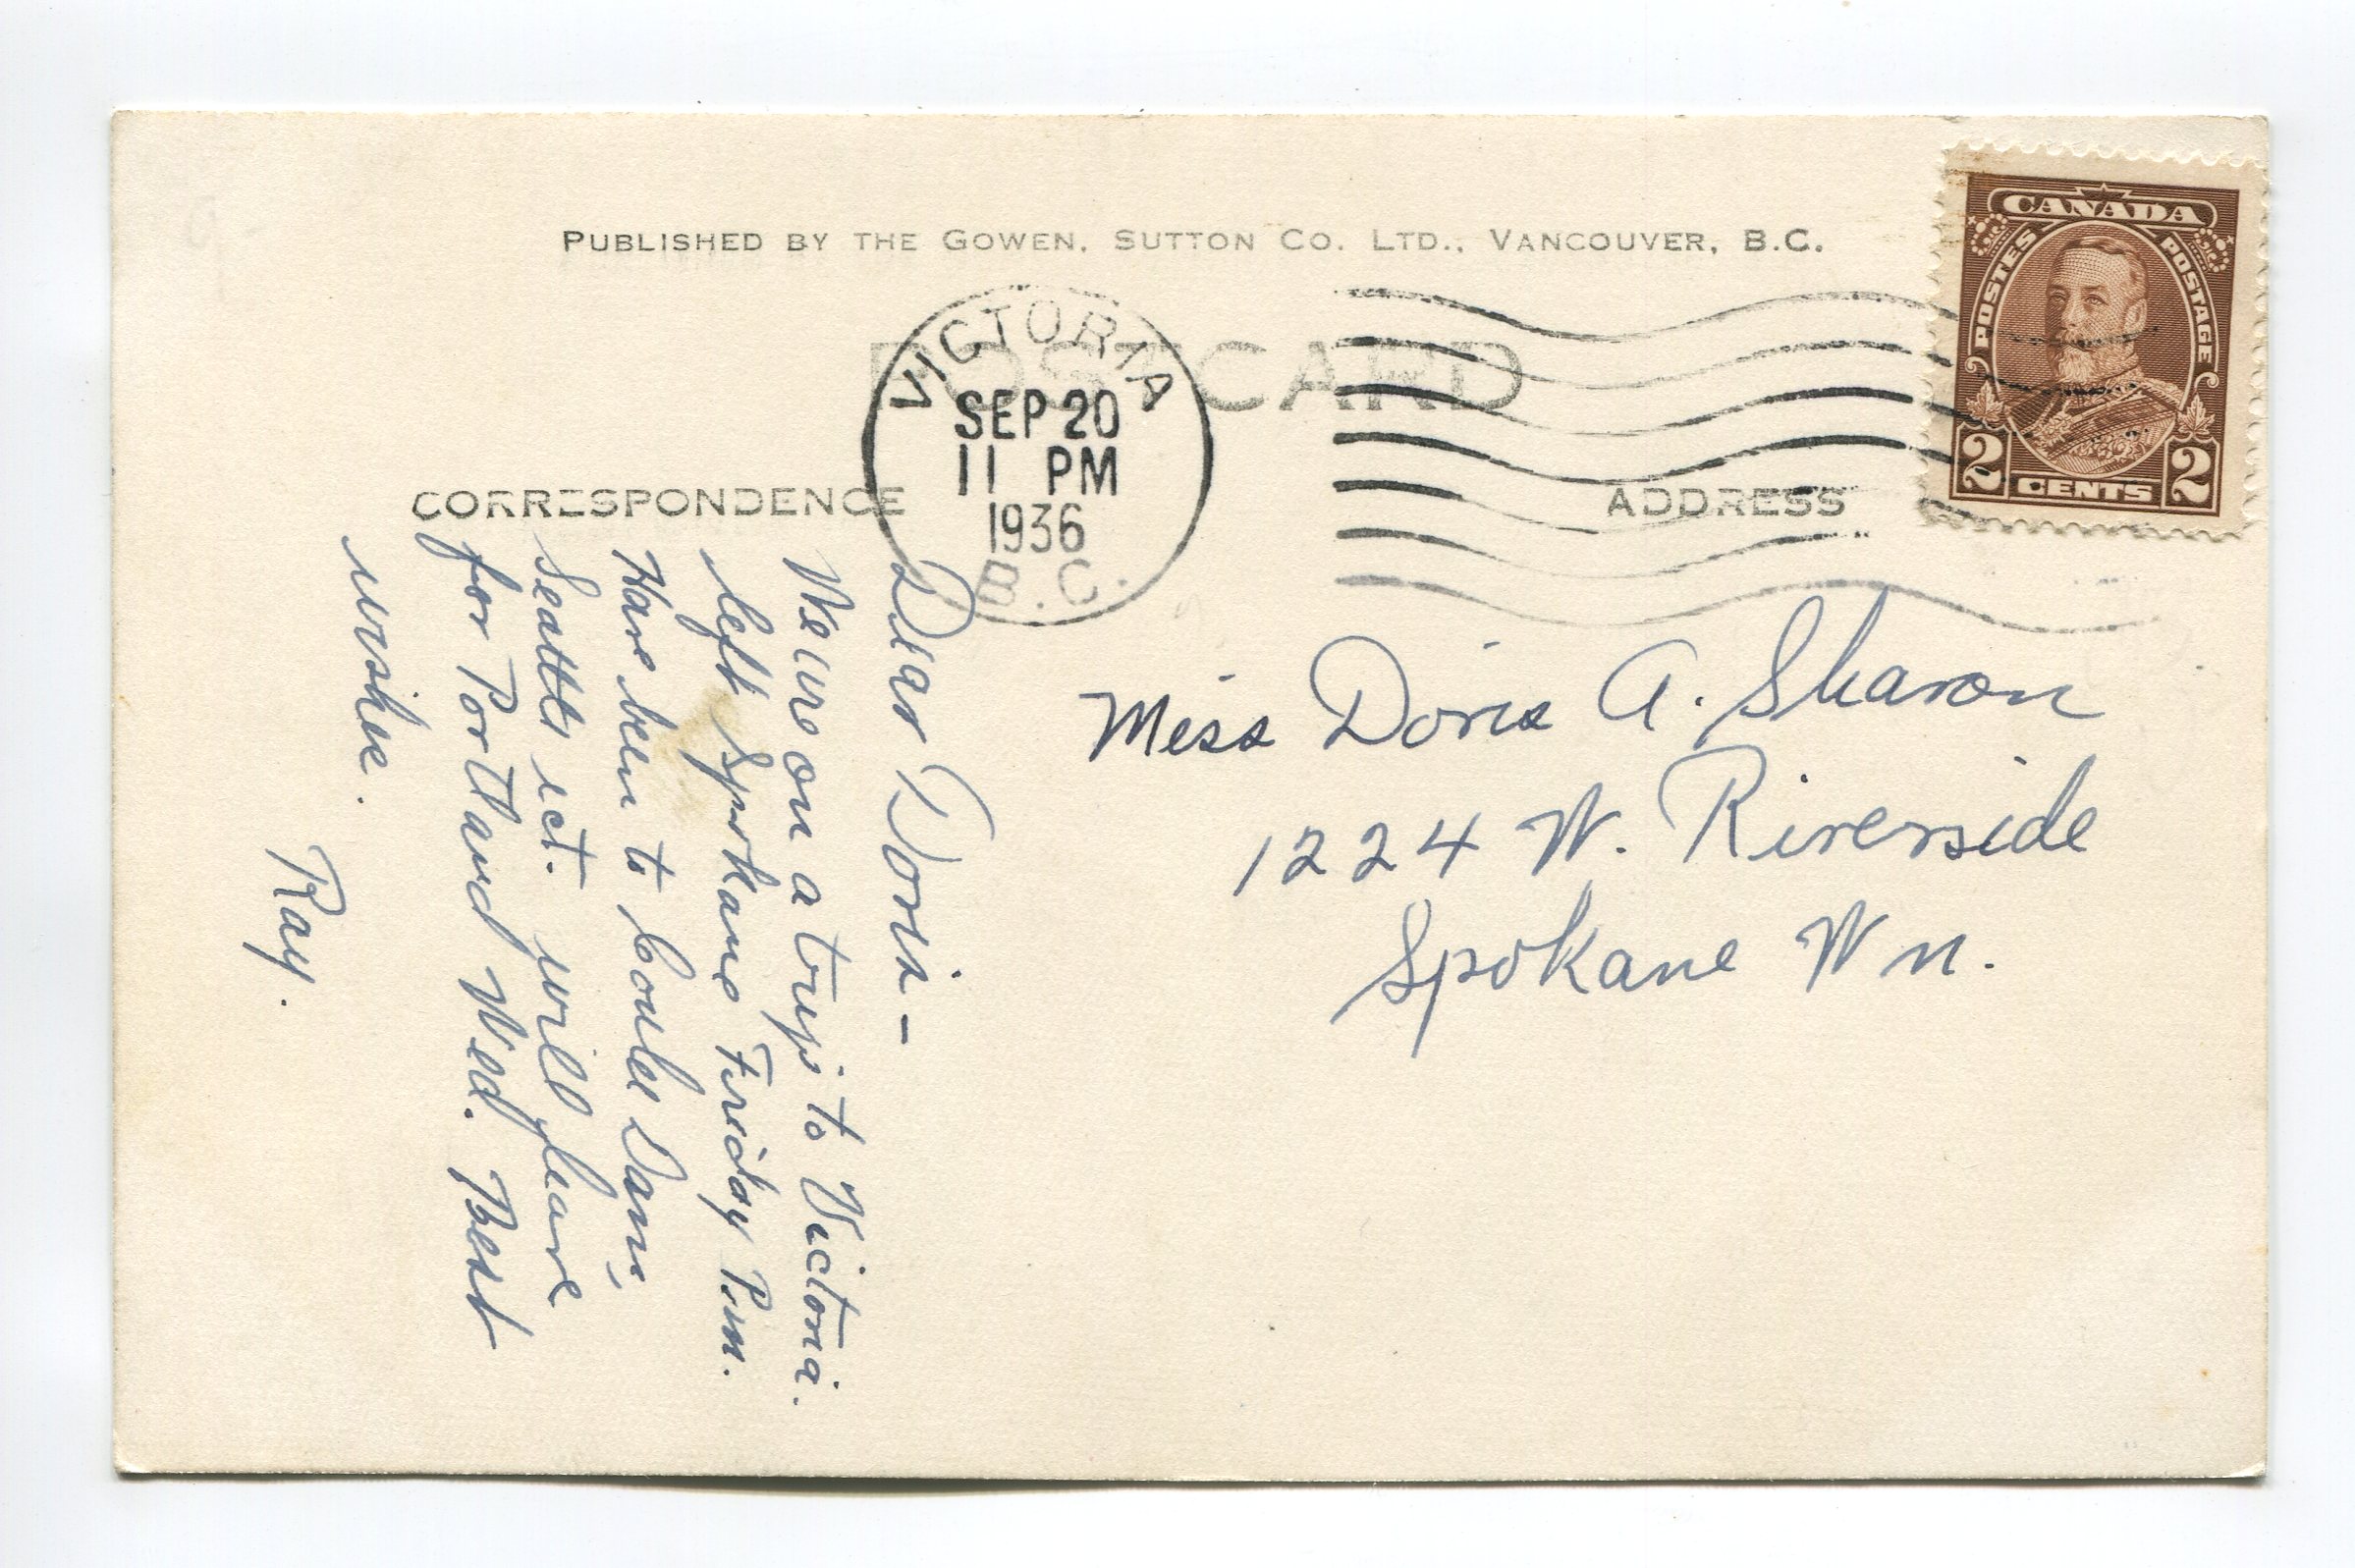 PUBLISHED BY THE GOWEN, SUTTON CO. LTD., VANCOUVER, B.C.
POST CARD
VICTORIA
SEP 20
11 PM
1936
B.C.
CANADA
POSTES POSTAGE
2 CENTS 2
CORRESPONDENCE
ADDRESS
Dear Doris-
We are on a trip to Victoria.
left Spokane Friday P.m.
Have been to Coulee Dam,
Seattle ect. will leave
for Portland Wed. Best
wishes.
Ray.
Miss Doris A. Sharon
1224 W. Riverside
Spokane Wn.